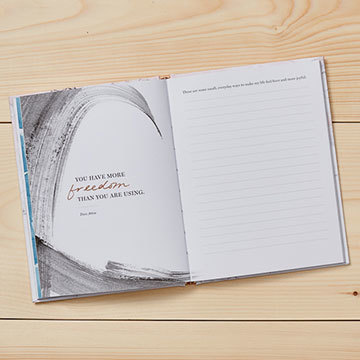 YOU HAVE MORE
freedom
THAN YOU ARE USING.
Dan Attoe
These are some small, everyday ways to make my life feel freer and more joyful: